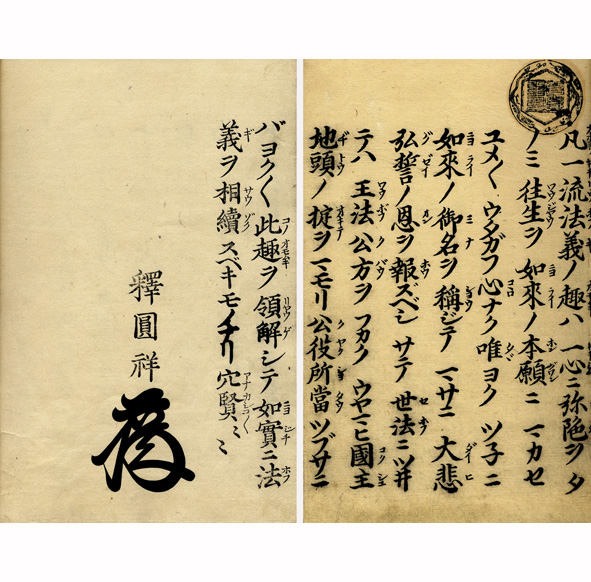 凡一流法義ノ趣ハ一心ニ弥陁ヲタ
ノミ往生ヲ如來ノ本願ニマカセ
ユメ〱ウタガフ心ナク唯ヨクツ子ニ
如來ノ御名ヲ稱ジテマサニ大悲
弘誓ノ恩ヲ報ズベシサテ世法ニツ井
テハ王法公方ヲフカクウヤマヒ國主
地頭ノ掟ヲマモリ公役所當ツブサニ
バヨク〱此趣ヲ領解シテ如實ニ法
義ヲ相續スベキモノナリ穴賢ミミ
釋圓祥